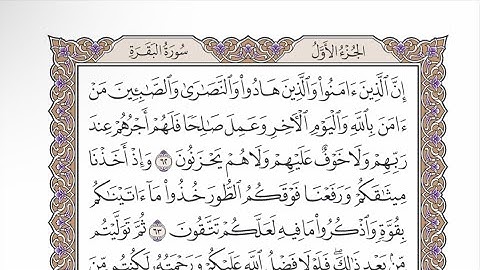 سُورَةُ البَقَرَةِ الجُزْءُ الأَوَّلُ
إِنَّ ٱلَّذِينَ ءَامَنُوا۟ وَٱلَّذِينَ هَادُوا۟ وَٱلنَّصَٰرَىٰ وَٱلصَّٰبِـِٔينَ مَنْ
ءَامَنَ بِٱللَّهِ وَٱلْيَوْمِ ٱلْءَاخِرِ وَعَمِلَ صَٰلِحًا فَلَهُمْ أَجْرُهُمْ عِندَ
رَبِّهِمْ وَلَا خَوْفٌ عَلَيْهِمْ وَلَا هُمْ يَحْزَنُونَ ٦٢ وَإِذْ أَخَذْنَا
مِيثَٰقَكُمْ وَرَفَعْنَا فَوْقَكُمُ ٱلطُّورَ خُذُوا۟ مَآ ءَاتَيْنَٰكُم
بِقُوَّةٍ وَٱذْكُرُوا۟ مَا فِيهِ لَعَلَّكُمْ تَتَّقُونَ ٦٣ ثُمَّ تَوَلَّيْتُم
مِّنۢ بَعْدِ ذَٰلِكَ ۖ فَلَوْلَا فَضْلُ ٱللَّهِ عَلَيْكُمْ وَرَحْمَتُهُۥ لَكُنتُم مِّنَ